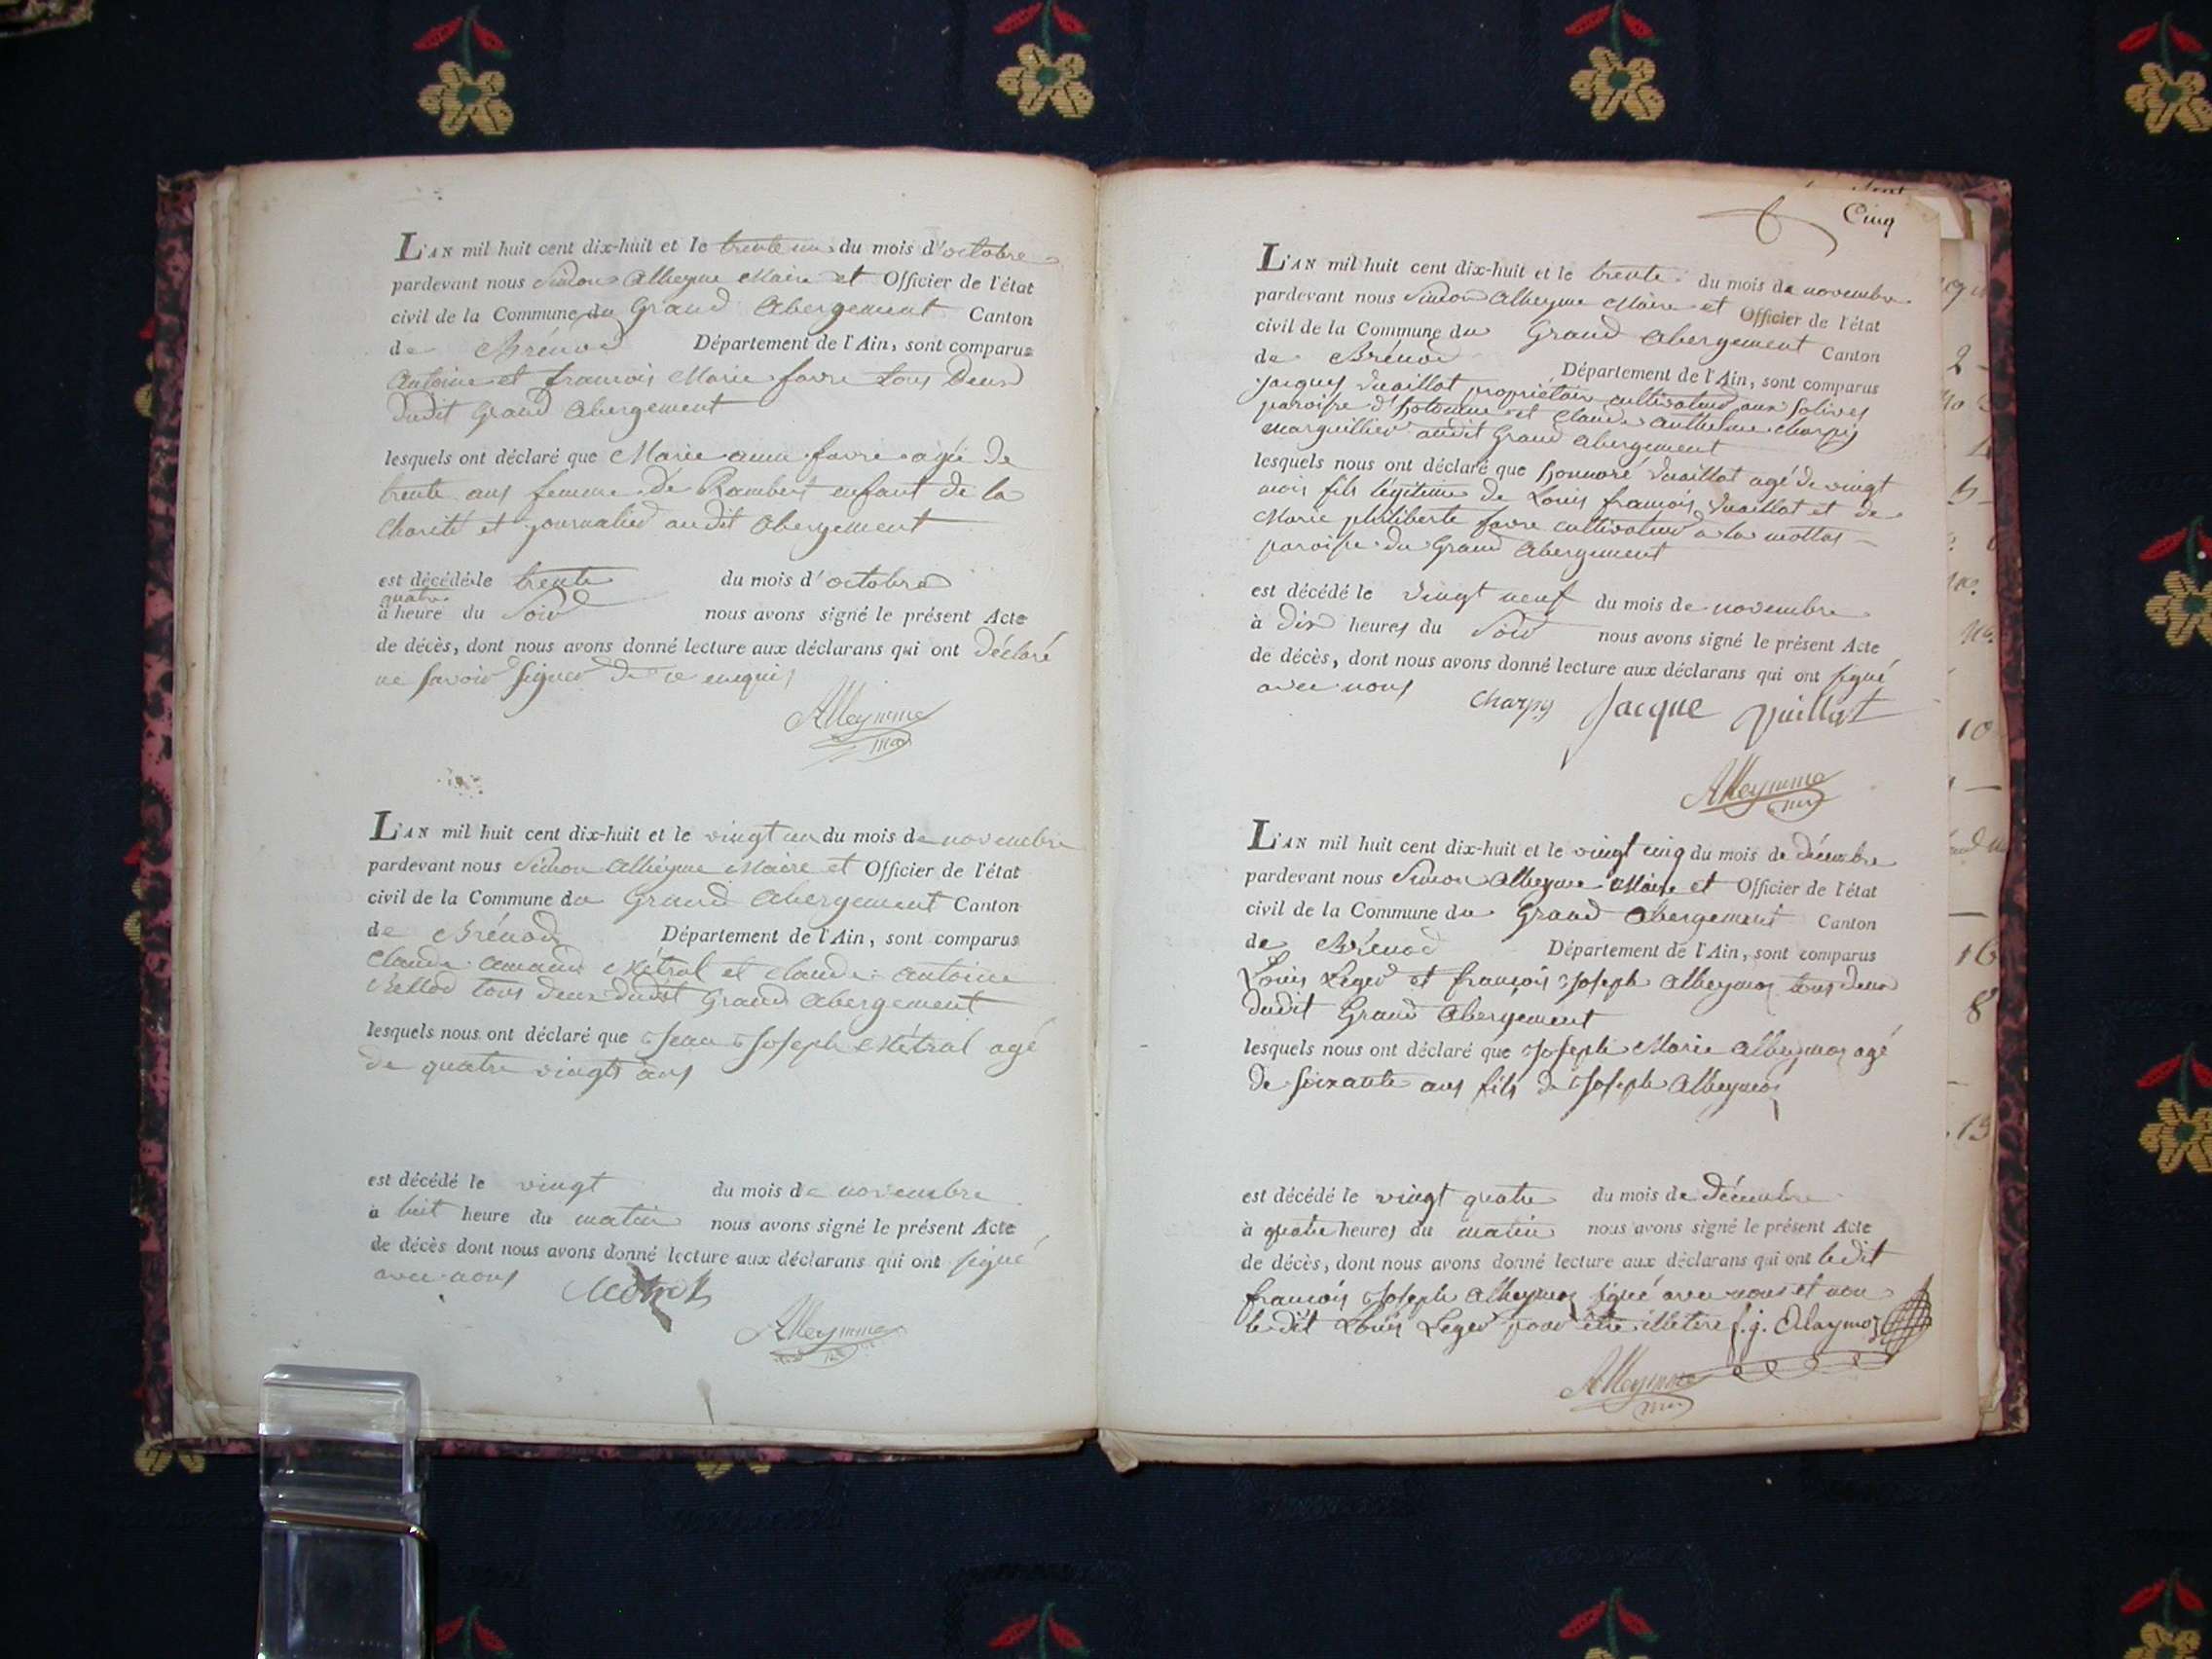 L'AN mil huit cent dix-huit et le trente un du mois d'octobre
pardevant nous Simon Alleyme Maire et Officier de l'état
civil de la Commune du Grand Abergement Canton
de Brénod Département de l'Ain, sont comparus
Antoine et francois Marie favre tous Deux
dudit Grand Abergement
lesquels ont déclaré que Marie anne favre agée de
trente ans femme De Rambert enfant de la
Charité et journalier audit Abergement
est décédé le trente du mois d'octobre
quatre
à heure du Soir nous avons signé le présent Acte
de décès, dont nous avons donné lecture aux déclarans qui ont déclaré
ne savoir signer de ce enquis
Alleymme
L'AN mil huit cent dix-huit et le vingt un du mois de novembre
pardevant nous Simon Alleyme Maire et Officier de l'état
civil de la Commune du Grand Abergement Canton
de Brénod Département de l'Ain, sont comparus
Claude Amand Métral et Claude Antoine
Bellod tous deux dudit Grand Abergement
lesquels nous ont déclaré que Jean Joseph Métral agé
de quatre vingts ans
est décédé le vingt du mois de novembre
à huit heure du matin nous avons signé le présent Acte
de décès dont nous avons donné lecture aux déclarans qui ont signé
avec nous
Alleymme
Cinq
L'AN mil huit cent dix-huit et le trente du mois de novembre
pardevant nous Simon Alleyme Maire et Officier de l'état
civil de la Commune du Grand Abergement Canton
de Brénod Département de l'Ain, sont comparus
Jacques Vuaillat propriétaire cultivateur aux Solives
paroisse d'hotonne et Claude Anthelme Charpy
marguillier audit Grand Abergement
lesquels nous ont déclaré que honnoré Vuaillat agé de vingt
mois fils légitime de Louis francois Vuaillat et de
Marie philiberte favre cultivateur a la mottas
paroisse du Grand Abergement
est décédé le vingt neuf du mois de novembre
à dix heures du Soir nous avons signé le présent Acte
de décès, dont nous avons donné lecture aux déclarans qui ont signé
avec nous Charpy Jacque Vuillat
Alleymme
L'AN mil huit cent dix-huit et le vingt cinq du mois de décembre
pardevant nous Simon Alleyme Maire et Officier de l'état
civil de la Commune du Grand Abergement Canton
de Brénod Département de l'Ain, sont comparus
Louis Leger et françois Joseph Alleymoz tous deux
dudit Grand Abergement
lesquels nous ont déclaré que Joseph Marie Alleymoz agé
de soixante ans fils de Joseph Alleymoz
est décédé le vingt quatre du mois de décembre
à quatre heures du matin nous avons signé le présent Acte
de décès, dont nous avons donné lecture aux déclarans qui ont ledit
francois Joseph Alleymoz signé avec nous et non
le dit Louis Leger pour être illetéré f. j. Alaymoz
Alleymme
2
10
16
8
13